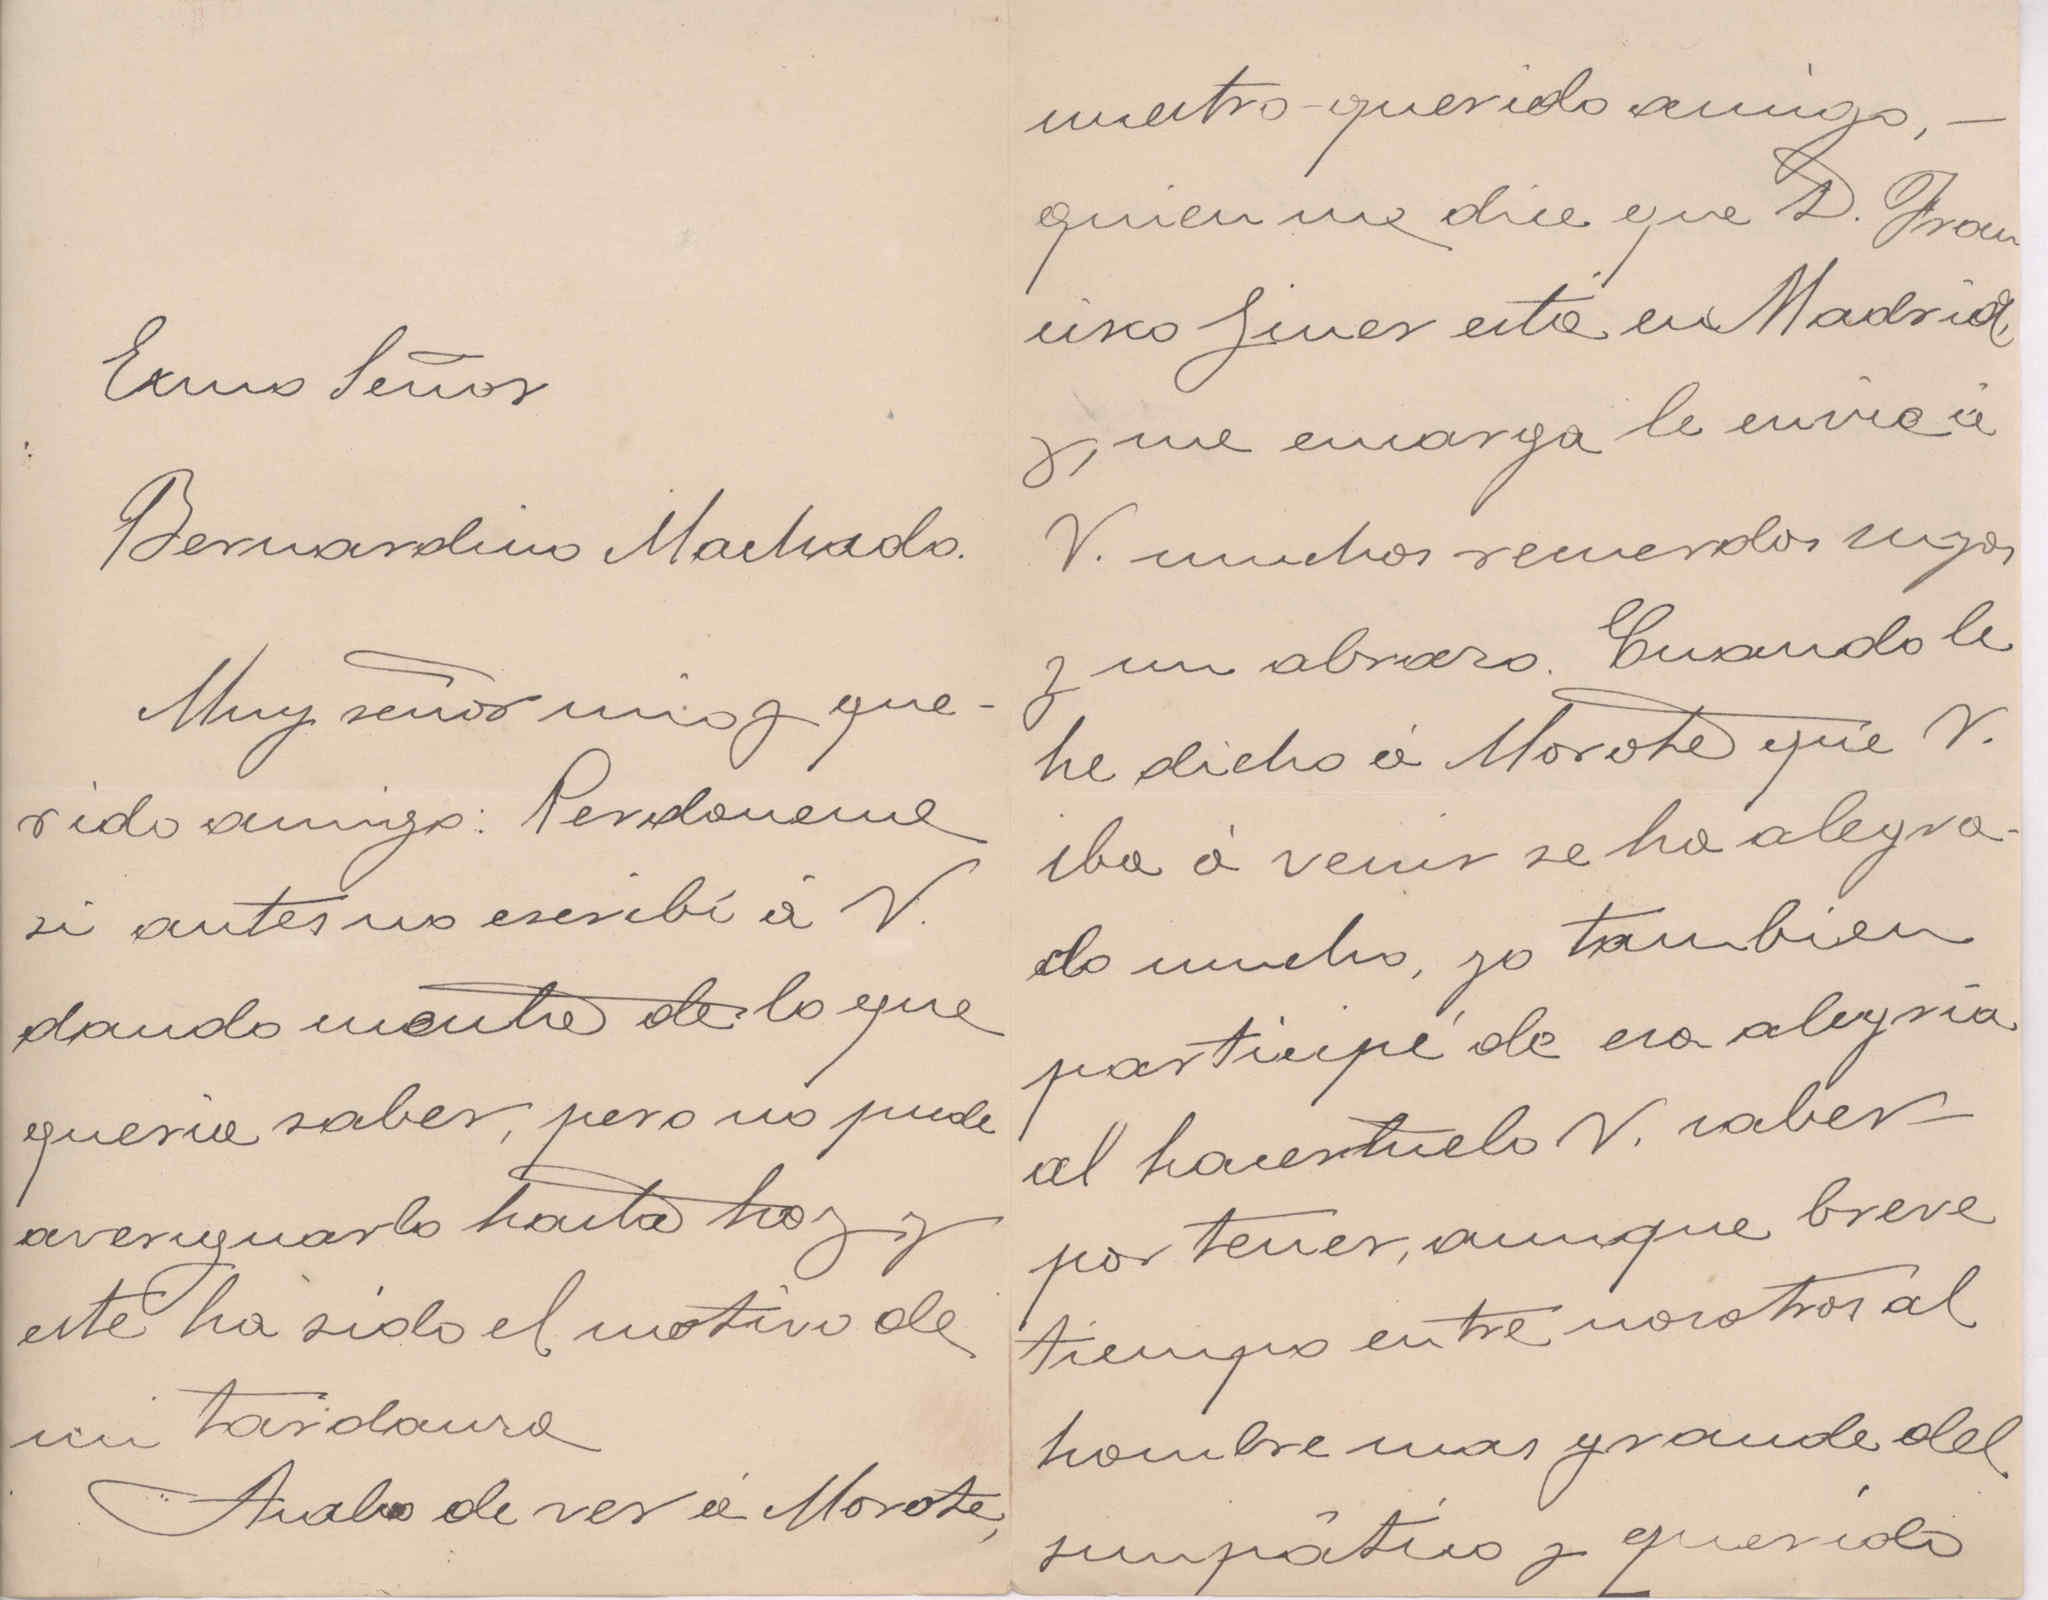 Exmo Señor
Bernardino Machado.
Muy señor mio y que-
rido amigo: Perdoneme
si antes no escribí á V.
dando cuenta de lo que
queria saber, pero no pude
averiguarlo hasta hoy y
este ha sido el motivo de
mi tardanza
Acabo de ver á Morote,
nuestro querido amigo, —
quien me dice que D. Fran
cisco Giner está en Madrid,
y, me encarga le envie á
V. muchos recuerdos suyos
y un abrazo. Cuando le
he dicho á Morote que V.
iba á venir se ha alegra-
do mucho, yo tambien
participé de esa alegría
al V. saber
por tener, aunque breve
tiempo entre nosotros al
hombre mas grande del
simpático y querido